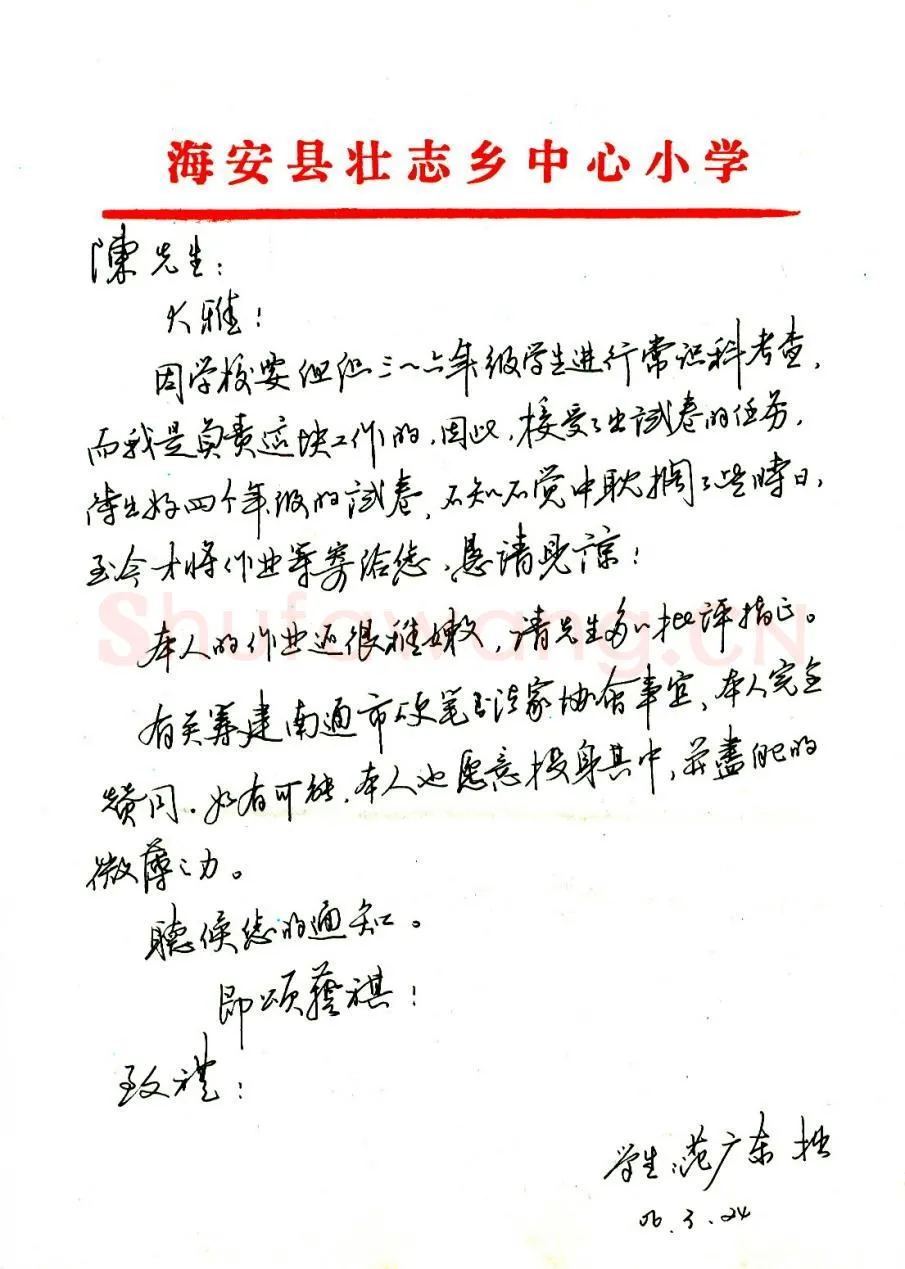 海安县壮志乡中心小学
陳先生：
大雅！
因学校要组织三~六年级学生进行常识科考查，
而我是负责这块工作的，因此，接受了出试卷的任务，
待出好四个年级的试卷，不知不觉中耽搁了些時日，
至今才将作业草寄给您，恳请見諒！
本人的作业还很稚嫩，请先生多多批评指正。
有关筹建南通市硬笔书法家协會事宜，本人完全
赞同。如有可能，本人也愿意投身其中，并盡自己的
微薄之力。
聽候您的通知。
即颂藝祺！
致礼！
学生：范广东 拙
06.3.24
Shufawang.CN